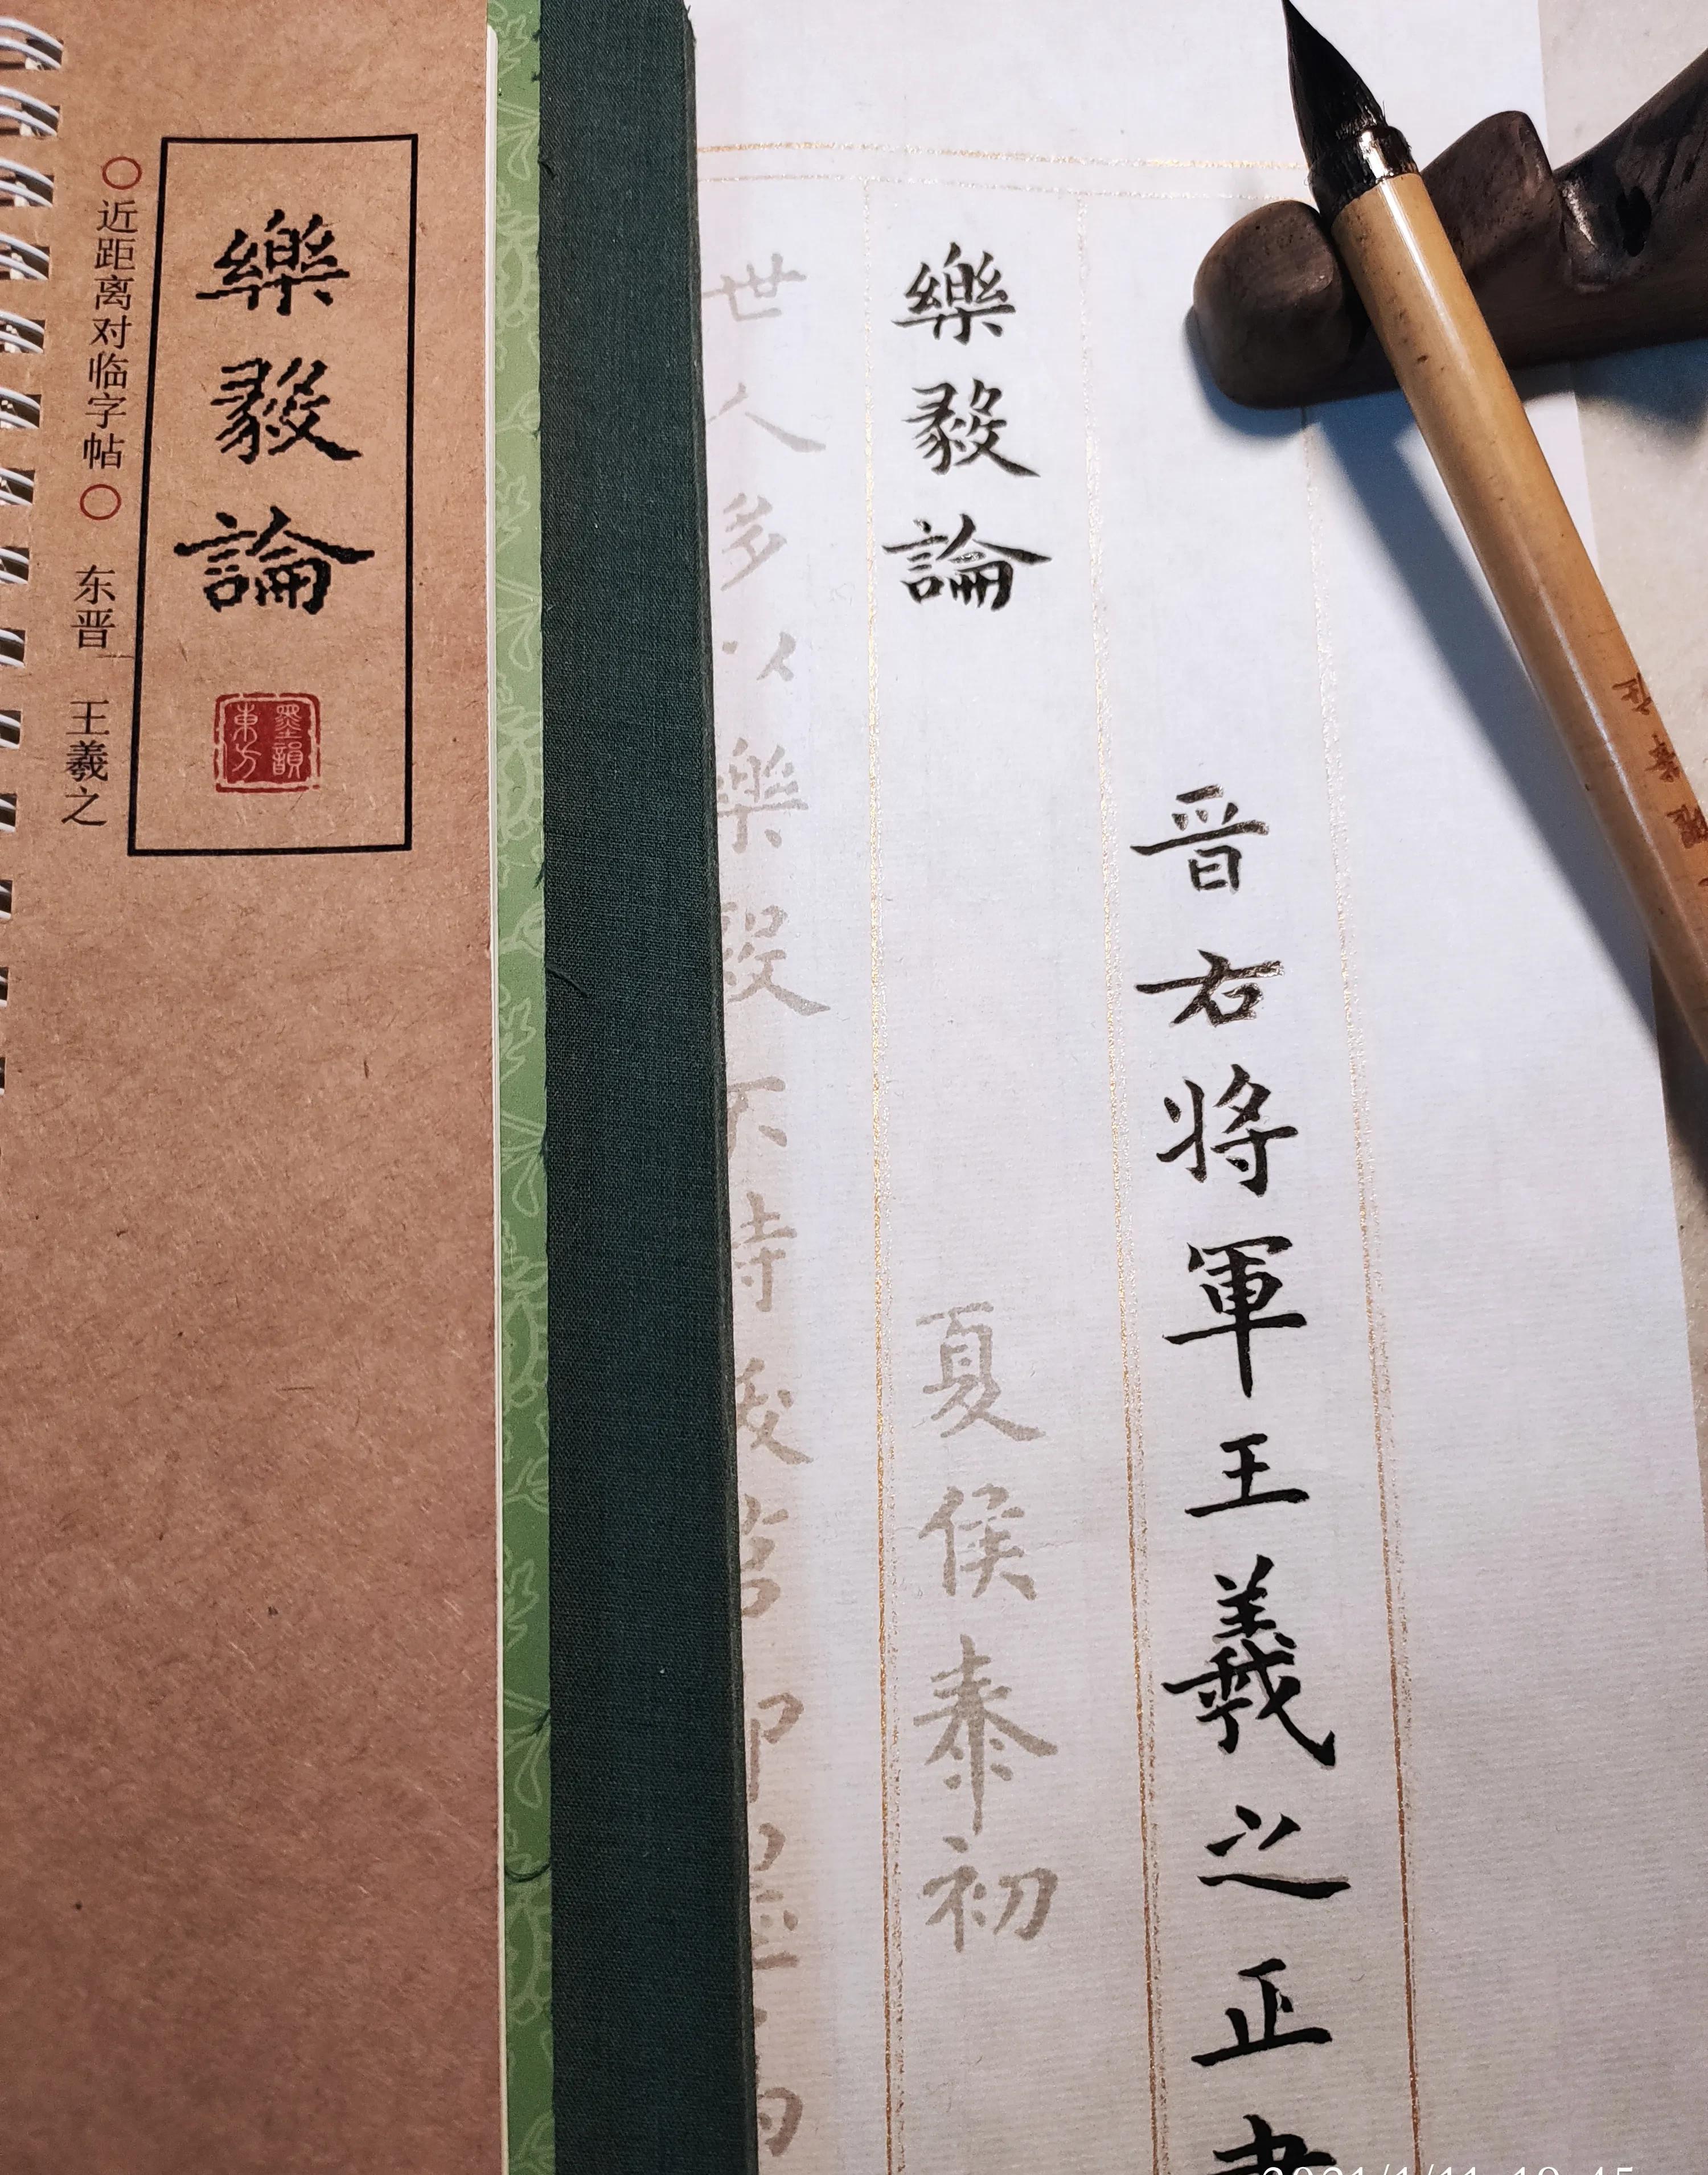 樂毅論
○近距离对临字帖○ 东晋 王羲之
墨韻東方
晉右將軍王羲之正書
樂毅論 夏侯泰初
世人多以樂毅不時拔莒即墨
2021/1/11 19:45